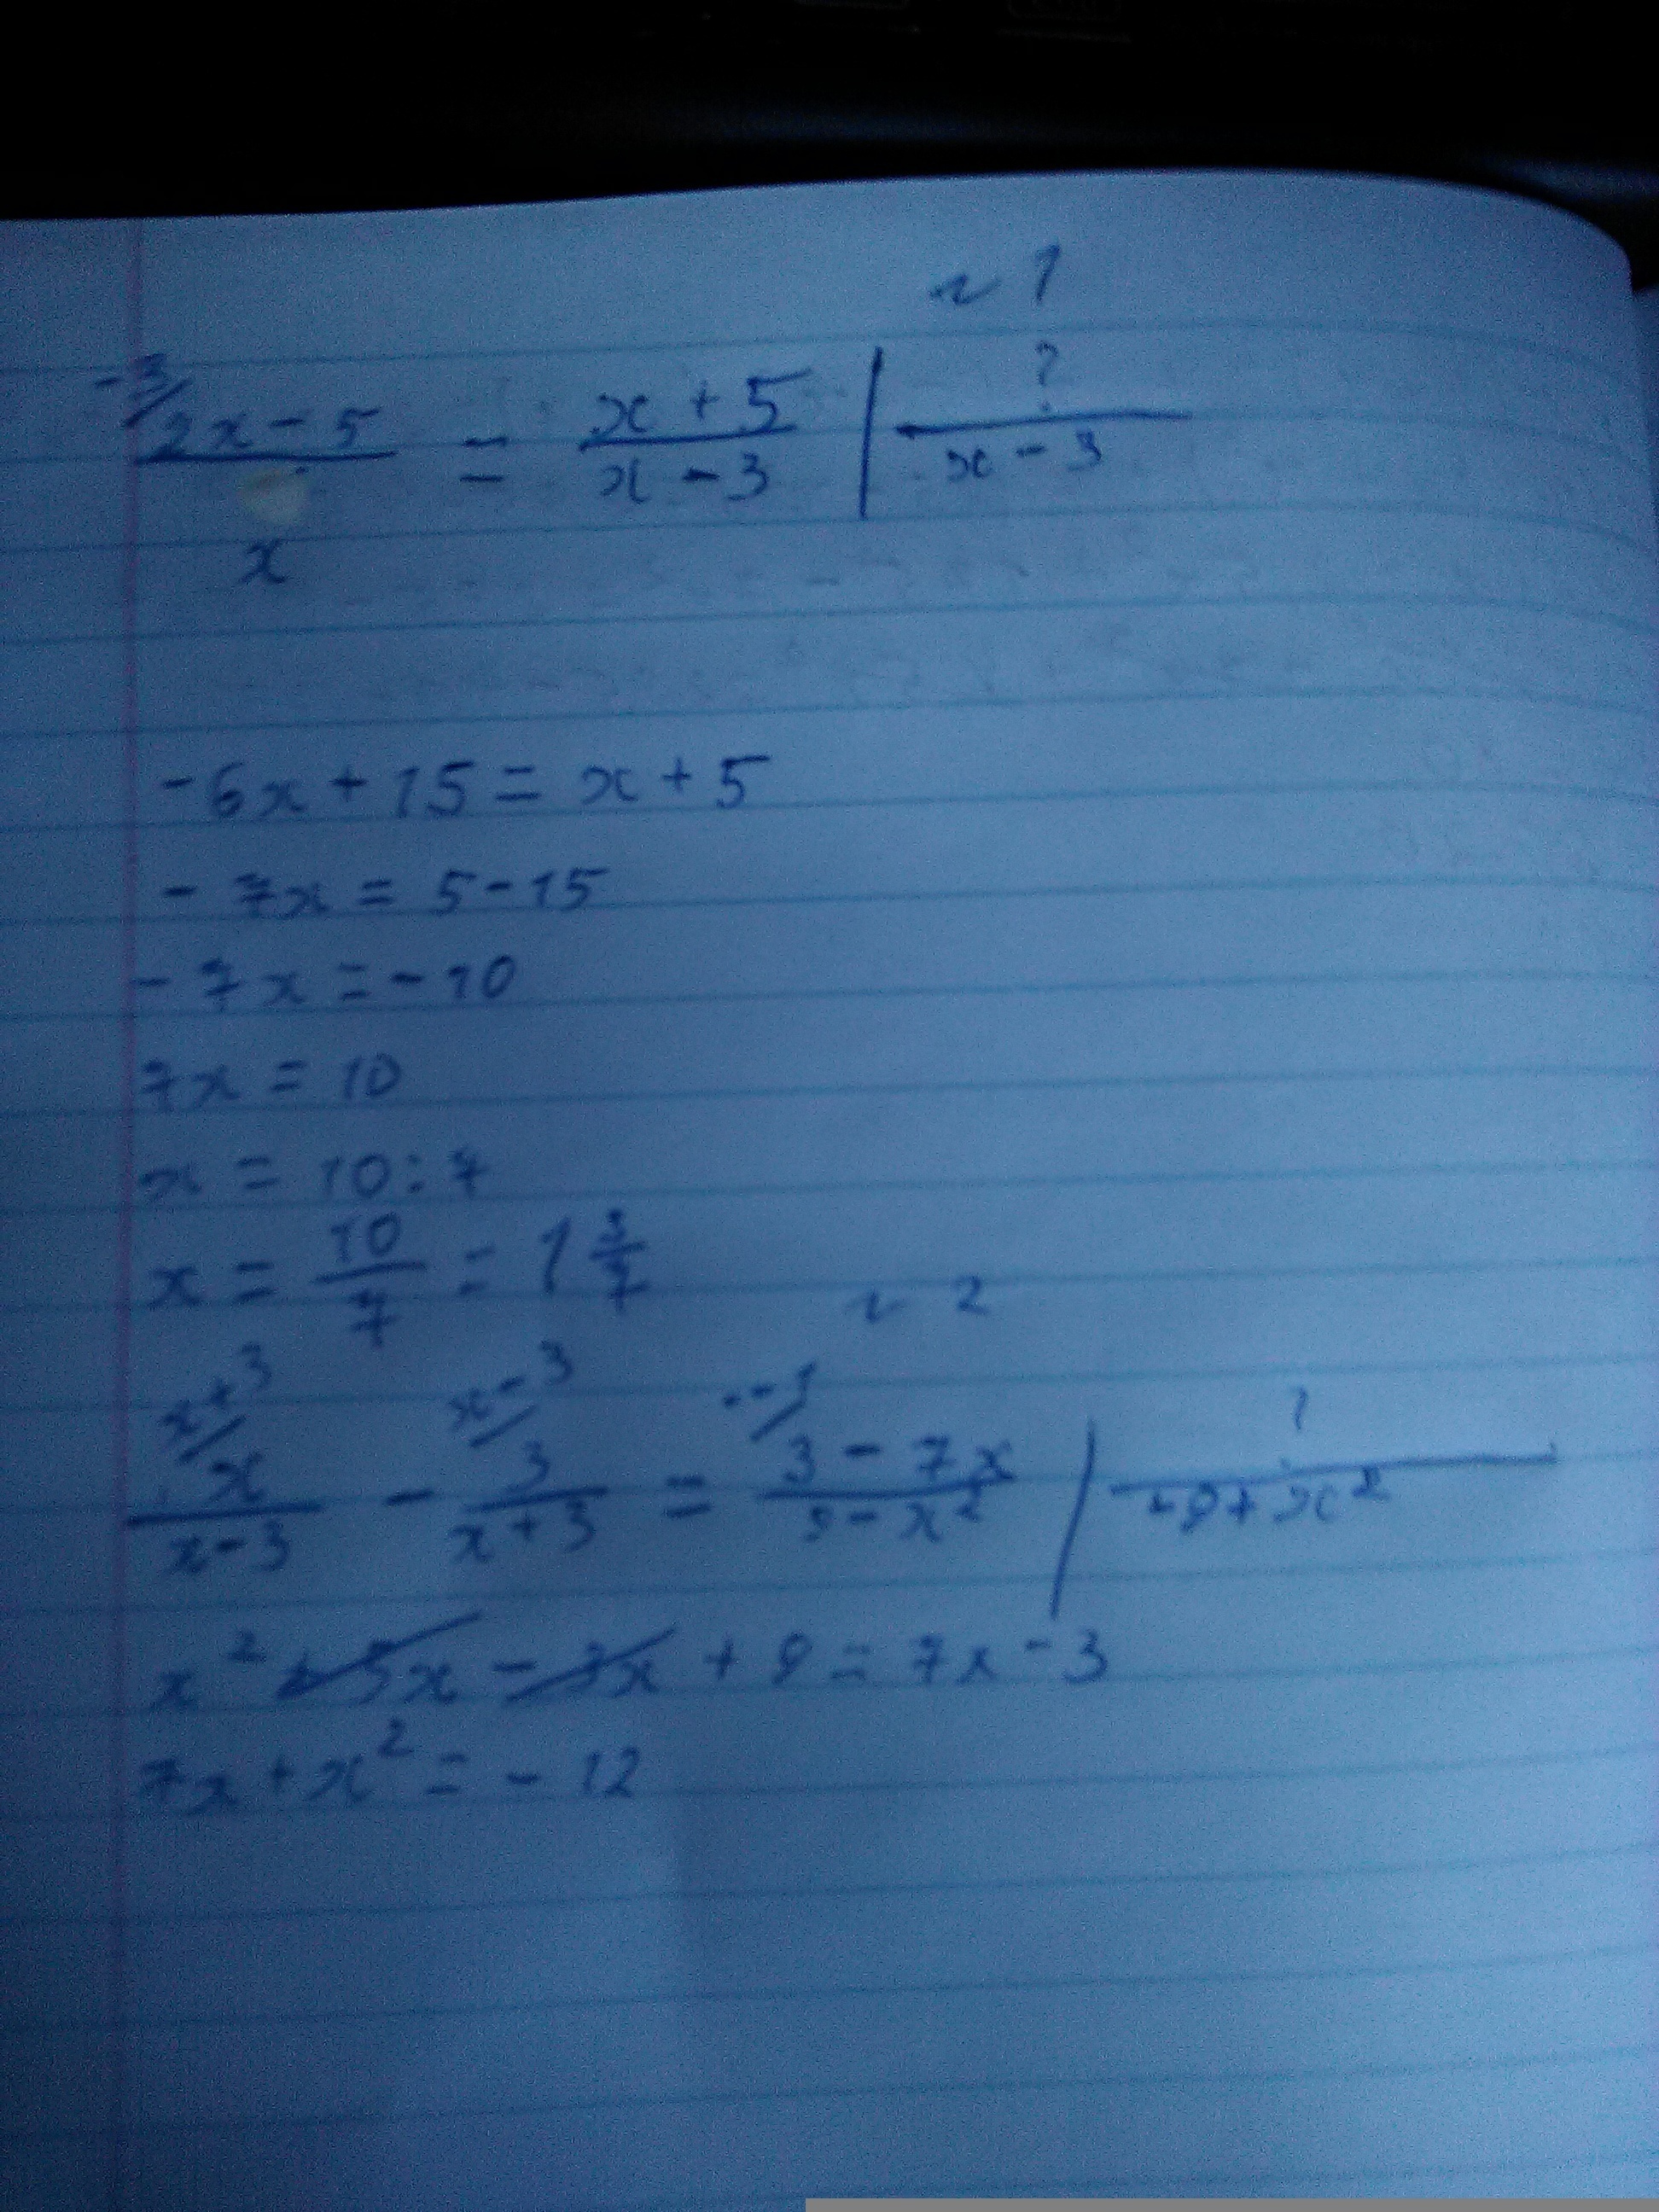 № 1
-3/ 2x - 5 / x = x + 5 / x - 3 | ? / x - 3
-6x + 15 = x + 5
- 7x = 5 - 15
- 7x = - 10
7x = 10
x = 10 : 7
x = 10/7 = 1 3/7
№ 2
x+3/ x / x-3 - x-3/ 3 / x+3 = -1/ 3 - 7x / 9 - x² | ? / -9 + x²
x² + 3x - 3x + 9 = 7x - 3
7x + x² = - 12